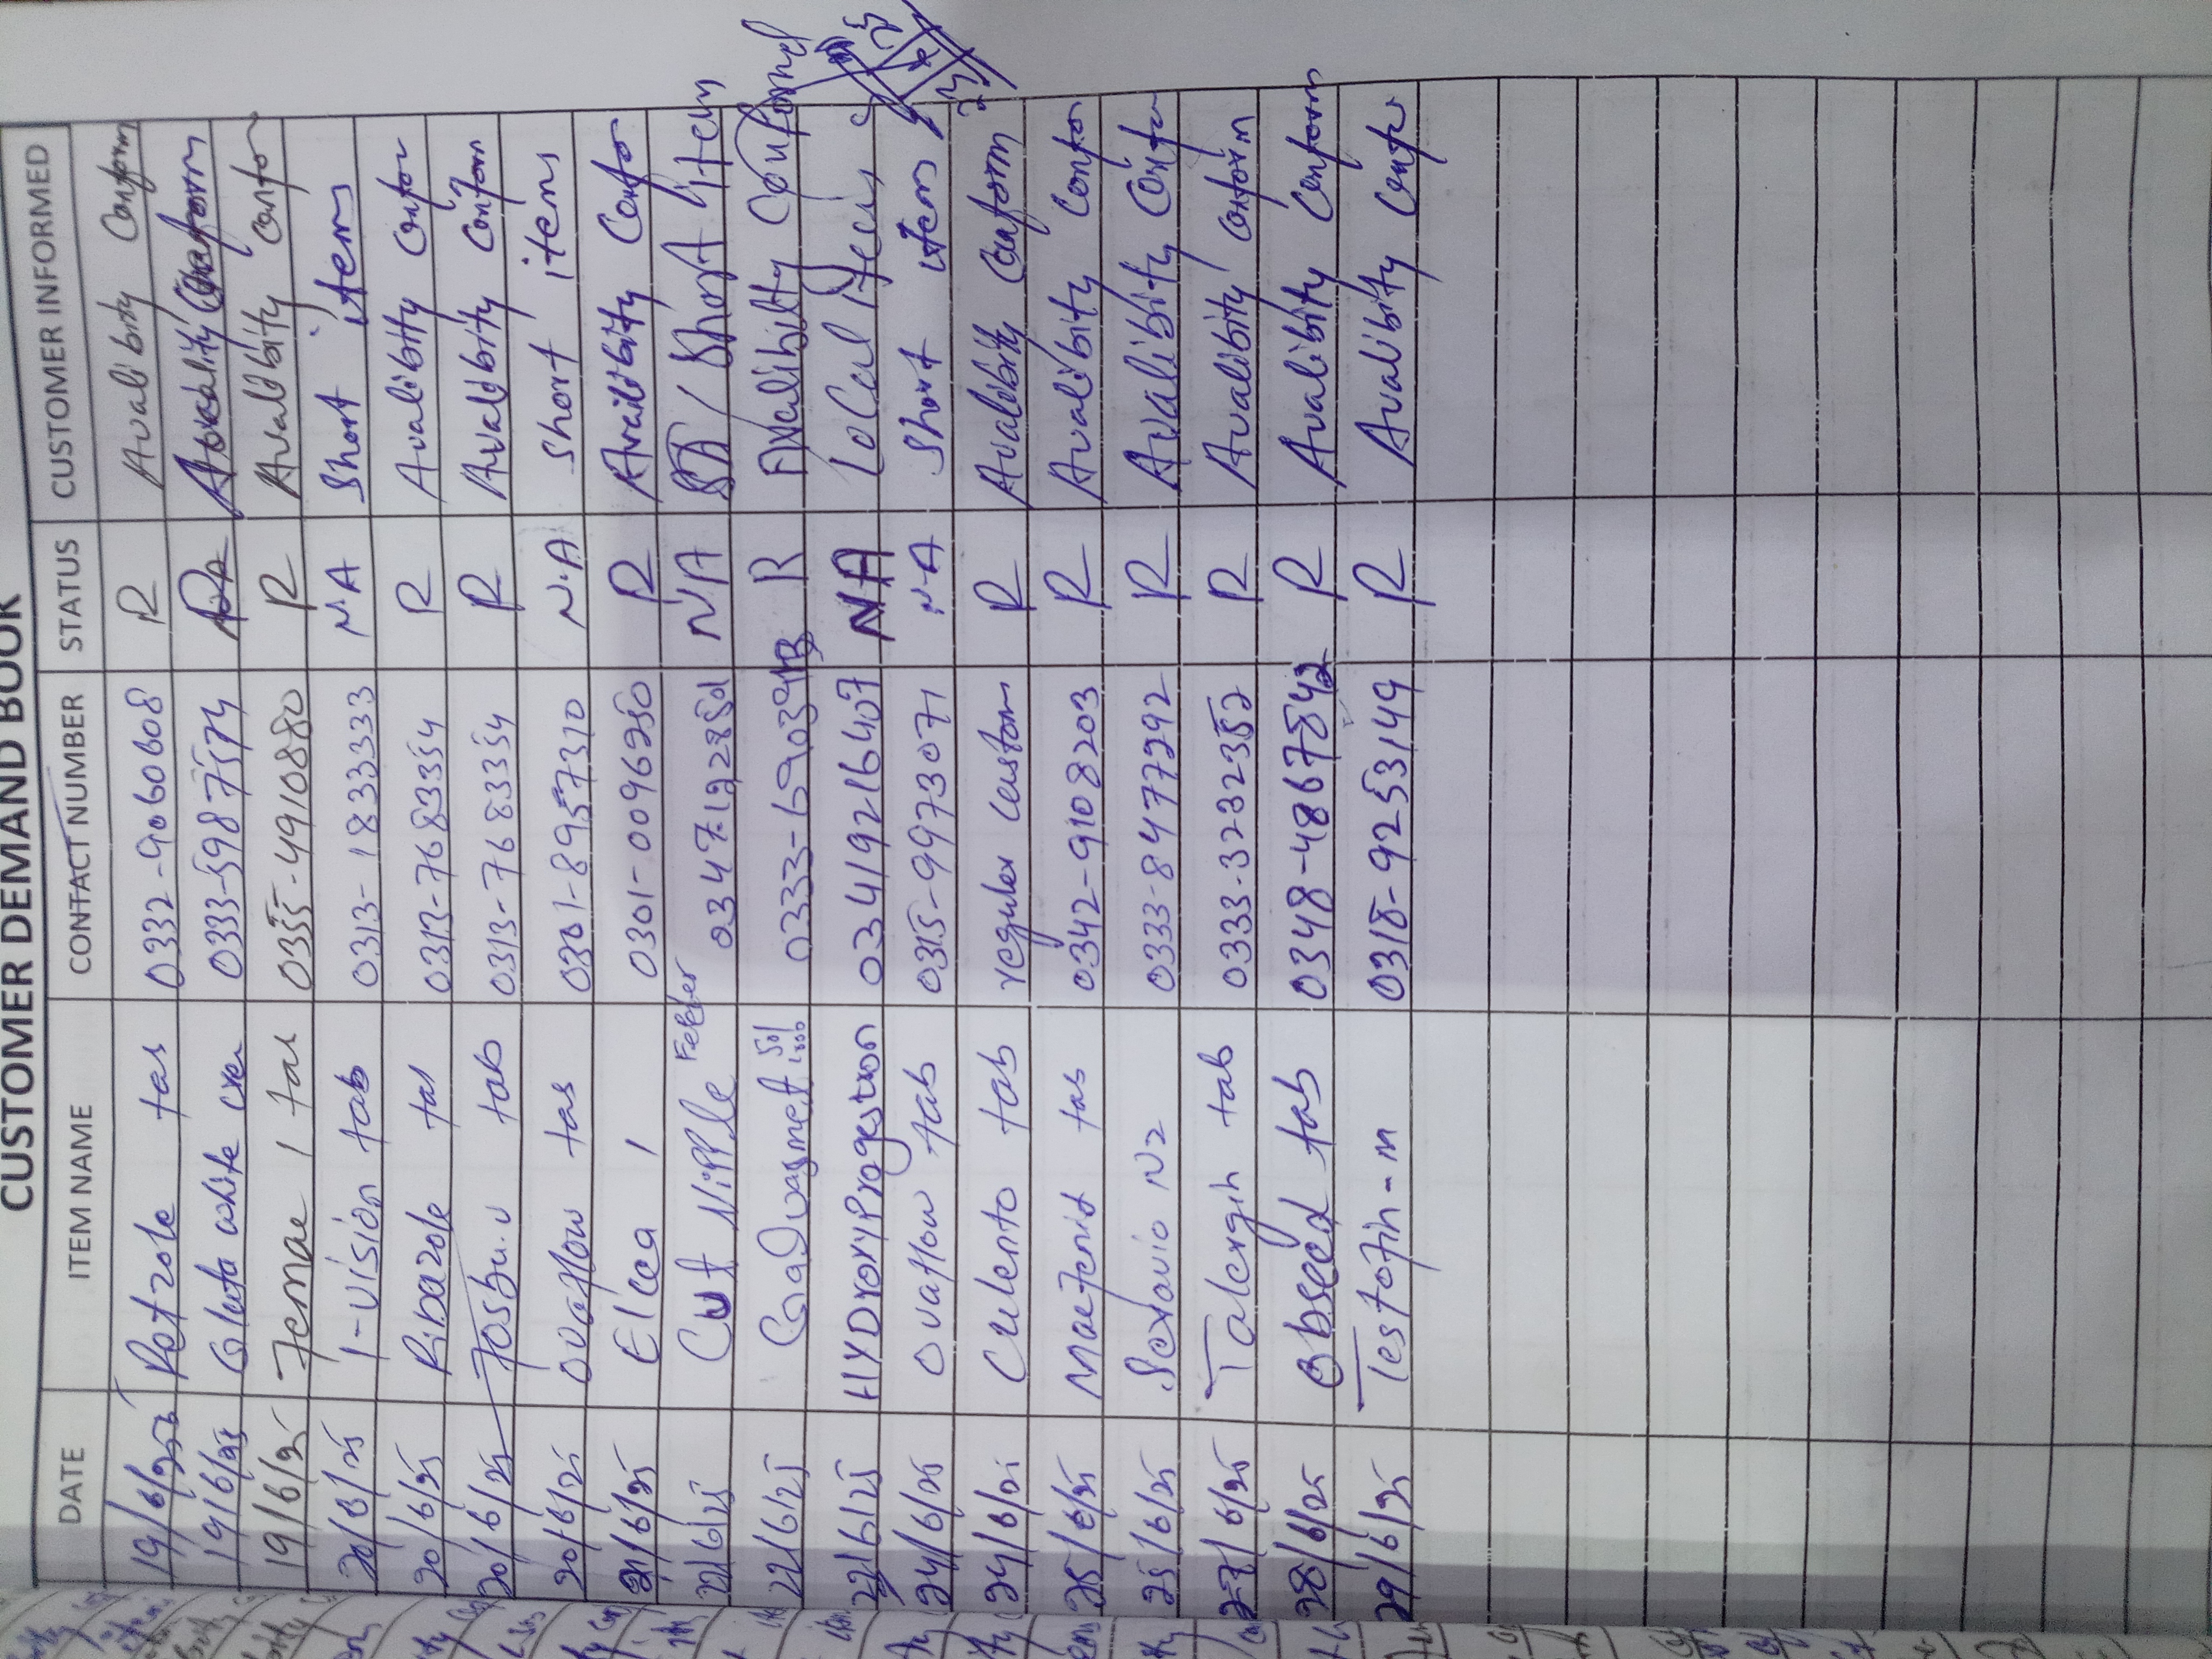 CUSTOMER DEMAND BOOK
DATE ITEM NAME CONTACT NUMBER STATUS CUSTOMER INFORMED
19/6/25 tas 0332-9060608 R Avalibity Conform
19/6/25 Gluta white 0333-5987574
19/6/25 Femae 1 tas 0355-4910880 R Avalibity Confo
20/6/25 1-vision tab 0313-1833333 N-A Short items
20/6/25 Ribazole tas 0313-7683354 R Avalibity Confor
20/6/25 tab 0313-7683354 R Avalibity Conform
20/6/25 Ovaflow tas 0301-8957310 N.A Short items
21/6/25 Elcea 1 0301-0096250 R Availibity Confo
22/6/25 Cut Nipple Feeder 03471922850 N'A / Short item
22/6/25 0333- R Avalibilty Conformed
22/6/25 HYDroxyProgestron 03419216407 NA Local
24/6/25 Ovaflow tab 0315-9973071 N-A Short item
24/6/25 Culento tab reguler Custom R Avalibity Conform
25/6/25 Maefenid tas 0342-9108203 R Avalibity Confo
25/6/25 N2 0333-8477292 R Avalibity Confo
27/6/25 Talergin tab 0333-3232352 R Avalibity Conform
28/6/25 Obseed tab 0348-4867542 R Avalibity Conform
29/6/25 Testofin-m 0318-9253149 R Avalibity Confo